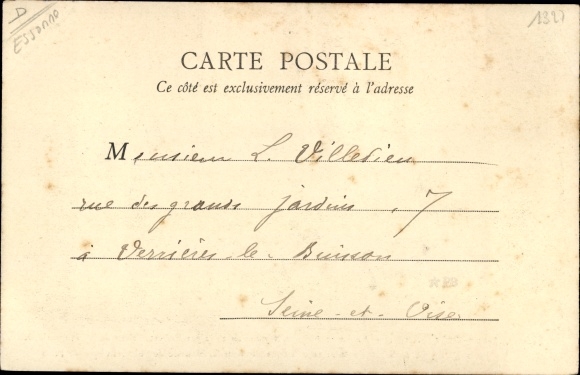 D
ESSONNE
1327
CARTE POSTALE
Ce côté est exclusivement réservé à l'adresse
Monsieur L. Villedieu
rue des grands jardins, 7
à Verrières-le-Buisson
Seine-et-Oise